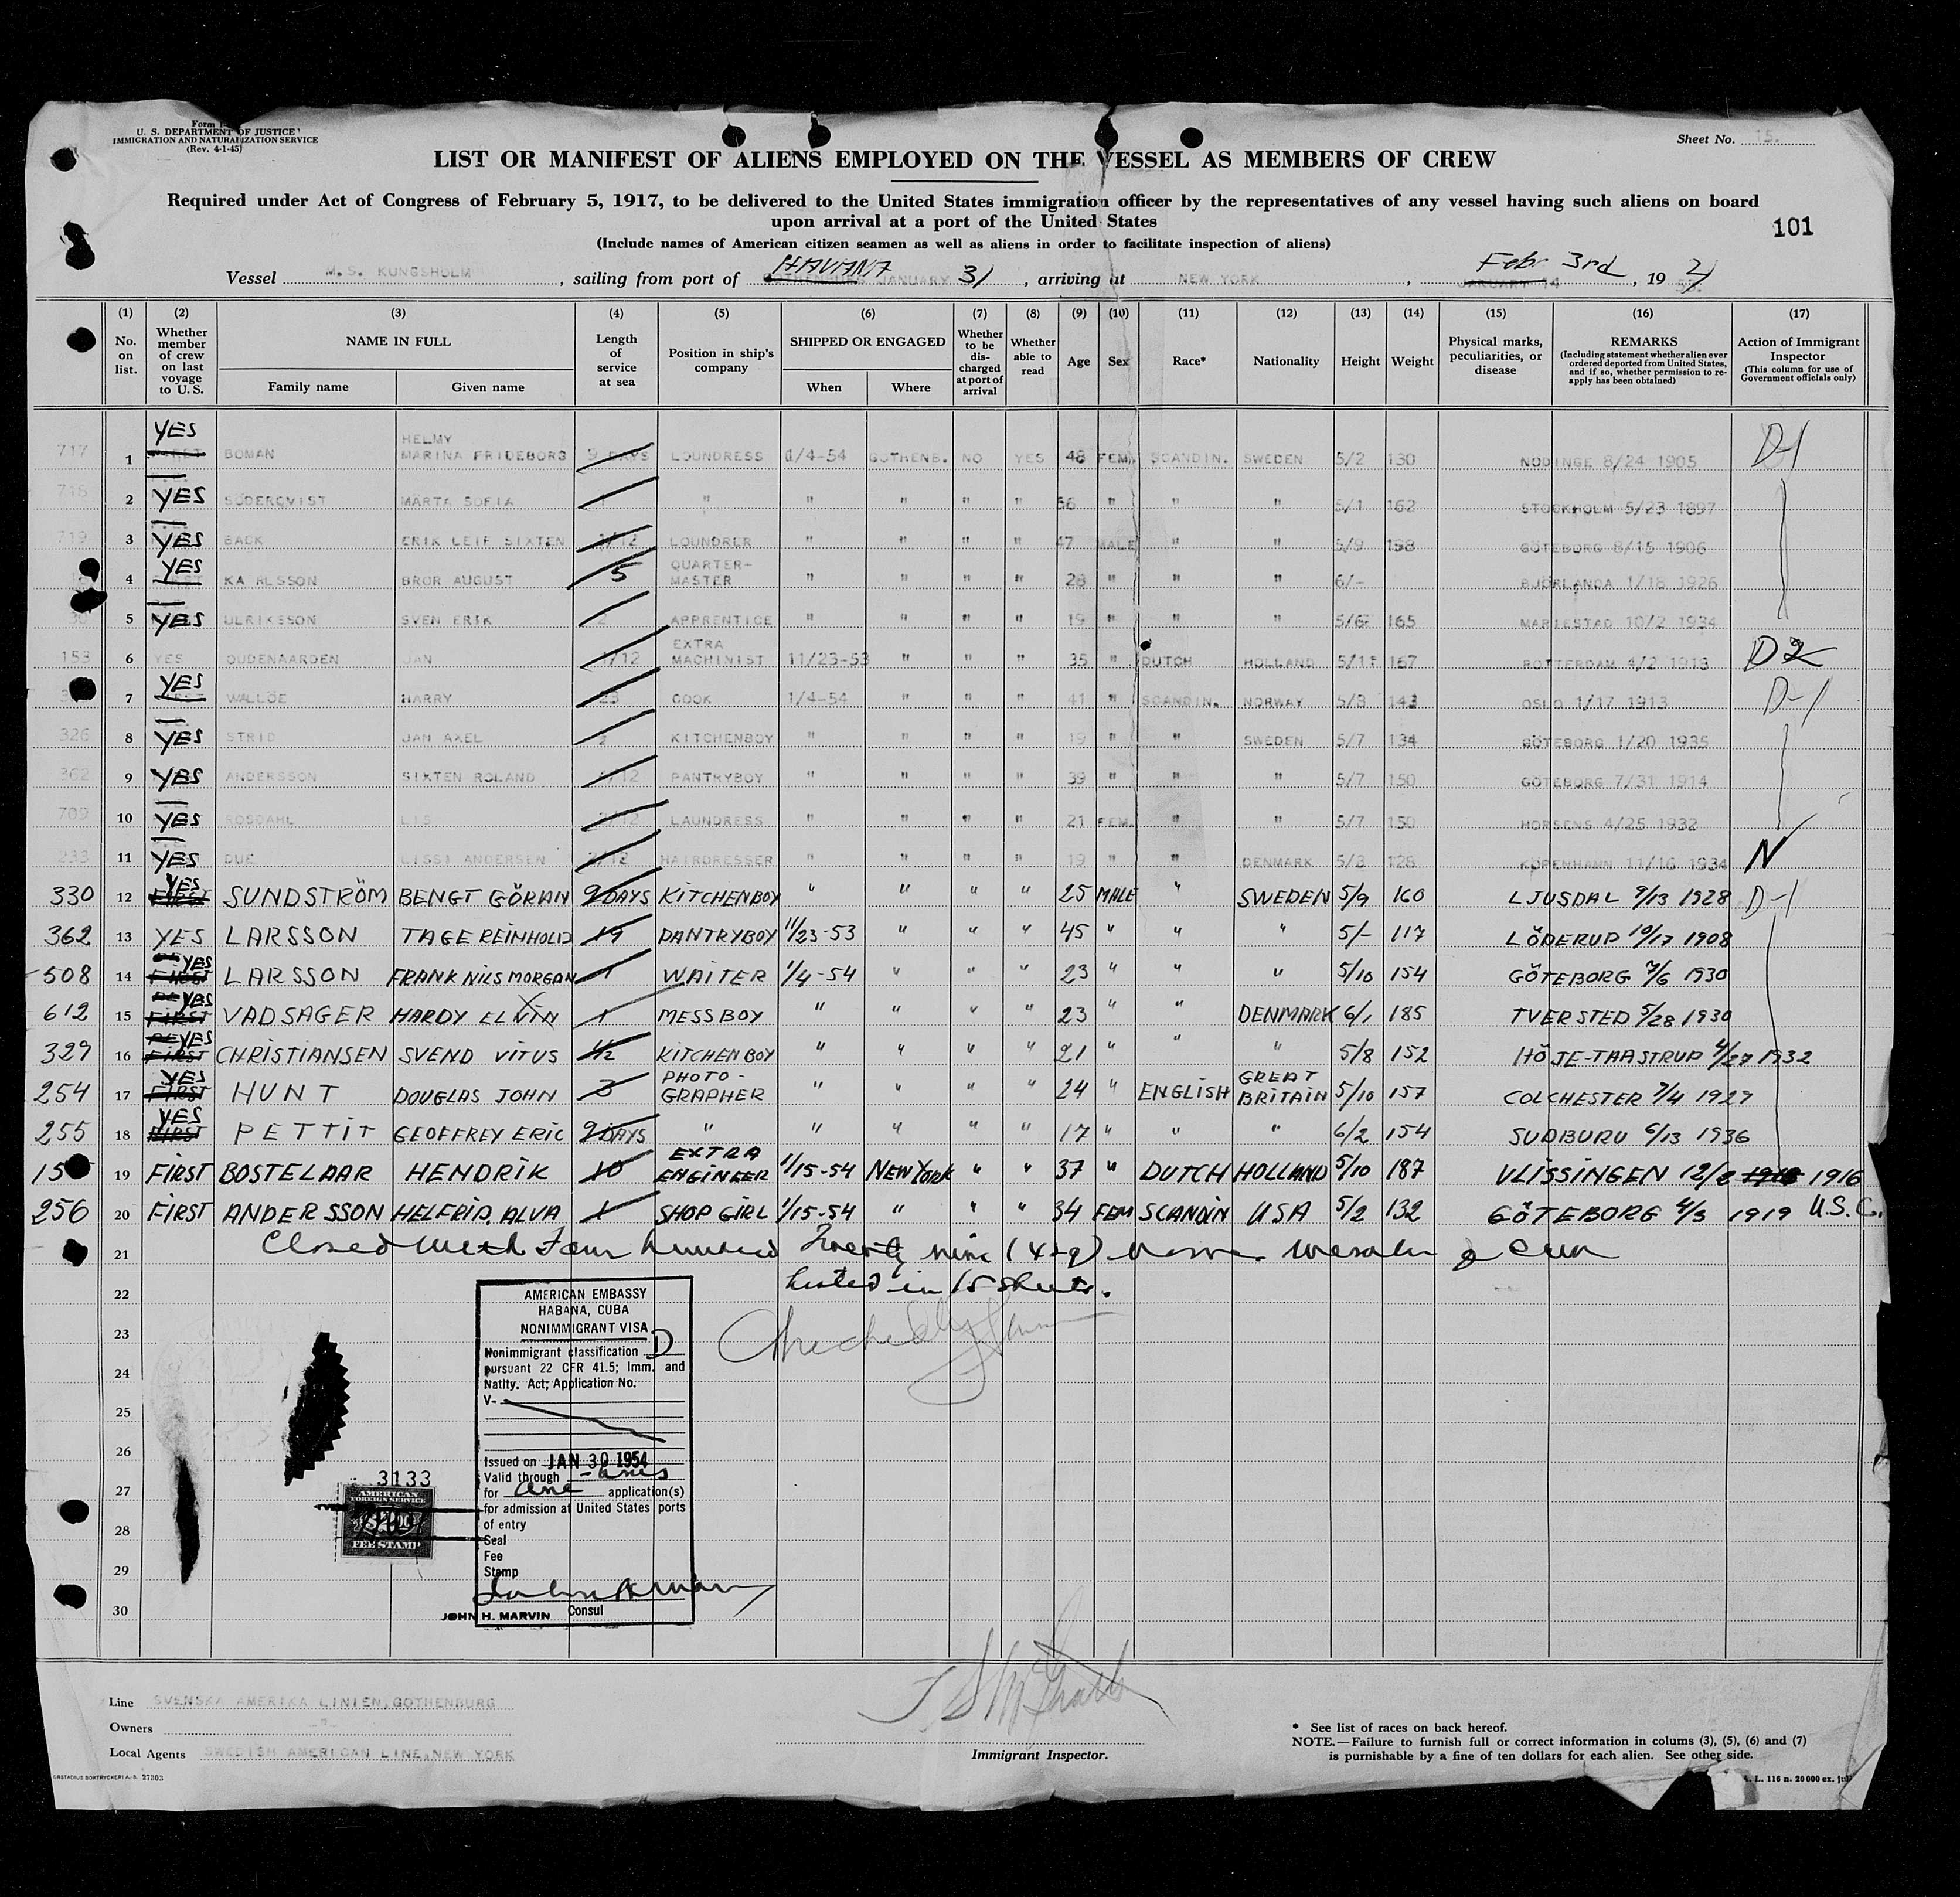 Form
U. S. DEPARTMENT OF JUSTICE
IMMIGRATION AND NATURALIZATION SERVICE
(Rev. 4-1-45)
Sheet No. 15.
LIST OR MANIFEST OF ALIENS EMPLOYED ON THE VESSEL AS MEMBERS OF CREW
Required under Act of Congress of February 5, 1917, to be delivered to the United States immigration officer by the representatives of any vessel having such aliens on board
upon arrival at a port of the United States
101
(Include names of American citizen seamen as well as aliens in order to facilitate inspection of aliens)
Vessel M.S. KUNGSHOLM, sailing from port of HAVANA GOTHENBURG JANUARY 31, arriving at NEW YORK, Febr 3rd JANUARY 14, 19
(1) (2) (3) (4) (5) (6) (7) (8) (9) (10) (11) (12) (13) (14) (15) (16) (17)
No. on list. Whether member of crew on last voyage to U. S. NAME IN FULL Family name Given name Length of service at sea Position in ship's company SHIPPED OR ENGAGED When Where Whether to be discharged at port of arrival Whether able to read Age Sex Race* Nationality Height Weight Physical marks, peculiarities, or disease REMARKS (Including statement whether alien ever ordered deported from United States, and if so, whether permission to reapply has been obtained) Action of Immigrant Inspector (This column for use of Government officials only)
717 1 YES BOMAN HELMY MARINA FRIDEBORG 9 DAYS LOUNDRESS 1/4-54 GOTHENB. NO YES 48 FEM. SCANDIN. SWEDEN 5/2 130 NÖDINGE 8/24 1905 D-1
718 2 YES SÖDERQVIST MÄRTA SOFIA " " " " " 56 " " " 5/1 162 STOCKHOLM 5/23 1897
719 3 YES BACK ERIK LEIF SIXTEN LOUNDRER " " " " 47 MALE " " 5/9 158 GÖTEBORG 8/15 1906
4 YES KARLSSON BROR AUGUST 5 QUARTER-MASTER " " " " 28 " " " 6/- BJÖRLANDA 1/18 1926
5 YES ULRIKSSON SVEN ERIK APPRENTICE " " " " 19 " " " 5/6 165 MARIESTAD 10/2 1934
153 6 YES OUDENAARDEN JAN 1/12 EXTRA MACHINIST 11/23-53 " " " 35 " DUTCH HOLLAND 5/11 167 ROTTERDAM 4/2 1918 D 2
7 YES WALLÖE HARRY 23 COOK 1/4-54 " " " 41 " SCANDIN. NORWAY 5/8 143 OSLO 1/17 1913 D-1
326 8 YES STRID JAN AXEL KITCHENBOY " " " " 19 " " SWEDEN 5/7 134 GÖTEBORG 1/20 1935
362 9 YES ANDERSSON SIXTEN ROLAND PANTRYBOY " " " " 39 " " " 5/7 150 GÖTEBORG 7/31 1914
709 10 YES ROSDAHL LIS LAUNDRESS " " " " 21 FEM. " " 5/7 150 HORSENS 4/25 1932
233 11 YES DUE LISSI ANDERSEN 2/12 HAIRDRESSER " " " " 19 " DENMARK 5/8 126 KÖPENHAMN 11/16 1934 N
330 12 YES FIRST SUNDSTRÖM BENGT GÖRAN 9 DAYS KITCHENBOY " " " " 25 MALE " SWEDEN 5/9 160 LJUSDAL 9/13 1928 D-1
362 13 YES LARSSON TAGE REINHOLD 19 PANTRYBOY 11/23-53 " " " 45 " " " 5/- 117 LÖDERUP 10/17 1908
508 14 YES FIRST LARSSON FRANK NILS MORGAN 1 WAITER 1/4-54 " " " 23 " " " 5/10 154 GÖTEBORG 7/6 1930
612 15 YES FIRST VADSAGER HARDY ELVIN 1 MESSBOY " " " " 23 " " DENMARK 6/1 185 TVERSTED 5/28 1930
329 16 YES FIRST CHRISTIANSEN SVEND VITUS 1/2 KITCHENBOY " " " " 21 " " " 5/8 152 HÖJE-TAASTRUP 4/27 1932
254 17 YES FIRST HUNT DOUGLAS JOHN 3 PHOTO-GRAPHER " " " " 24 " ENGLISH GREAT BRITAIN 5/10 157 COLCHESTER 7/4 1927
255 18 YES FIRST PETTIT GEOFFREY ERIC 9 DAYS " " " " " 17 " " " 6/2 154 SUDBURU 6/13 1936
15 19 FIRST BOSTELAAR HENDRIK 10 EXTRA ENGINEER 1/15-54 NEW YORK " " 37 " DUTCH HOLLAND 5/10 187 VLISSINGEN 12/2 1916 1916
256 20 FIRST ANDERSSON HELFRID, ALVA 1 SHOP GIRL 1/15-54 " " " 34 FEM SCANDIN USA 5/2 132 GÖTEBORG 4/3 1919 U.S.C.
21 Closed with Four hundred Twenty nine (429) names members of crew
22 listed in 15 sheets.
23
24
25
26
27
28
29
30
AMERICAN EMBASSY
HABANA, CUBA
NONIMMIGRANT VISA
Nonimmigrant classification D
pursuant 22 CFR 41.5; Imm. and
Natlty. Act; Application No.
V-
Issued on JAN 30 1954
Valid through
for one application(s)
for admission at United States ports
of entry
Seal
Fee
Stamp
JOHN H. MARVIN Consul
3133
AMERICAN
FOREIGN SERVICE
FEE STAMP
Line SVENSKA AMERIKA LINIEN, GOTHENBURG
Owners -"-
Local Agents SWEDISH AMERICAN LINE, NEW YORK
Immigrant Inspector.
* See list of races on back hereof.
NOTE.—Failure to furnish full or correct information in colums (3), (5), (6) and (7)
is purnishable by a fine of ten dollars for each alien. See other side.
ORSTADIUS BOKTRYCKERI A.-B. 27303
A. L. 116 n. 20 000 ex. jul